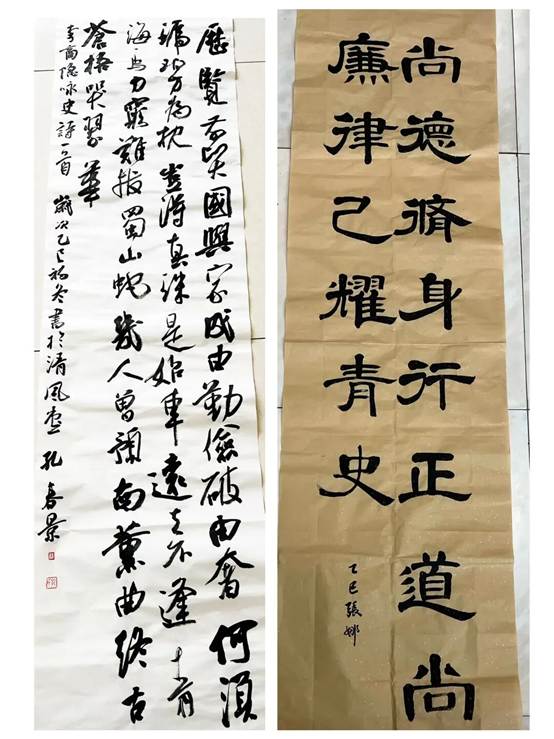 歷覽前賢國與家成由勤儉破由奢何須
琥珀方為枕豈得真珠是始車遠去不逢青
海馬力窮難拔蜀山蛇幾人曾預南薰曲終古
蒼梧哭翠華
李商隱詠史詩一首 歲次乙巳初冬書於清風 孔春景
尚德脩身行正道尚
廉律己耀青史
乙巳張娜